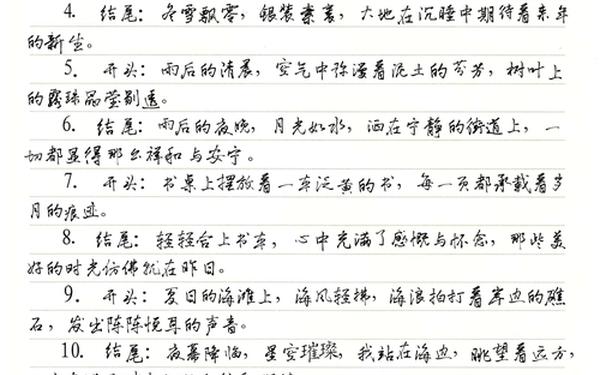 4. 结尾：冬雪飘零，银装素裹，大地在沉睡中期待着来年
的新生。
5. 开头：雨后的清晨，空气中弥漫着泥土的芬芳，树叶上
的露珠晶莹剔透。
6. 结尾：雨后的夜晚，月光如水，洒在宁静的街道上，一
切都显得那么祥和与安宁。
7. 开头：书桌上摆放着一本泛黄的书，每一页都承载着岁
月的痕迹。
8. 结尾：轻轻合上书本，心中充满了感慨与怀念，那些美
好的时光仿佛就在昨日。
9. 开头：夏日的海滩上，海风轻拂，海浪拍打着岸边的礁
石，发出阵阵悦耳的声音。
10. 结尾：夜幕降临，星空璀璨，我站在海边，眺望着远方，